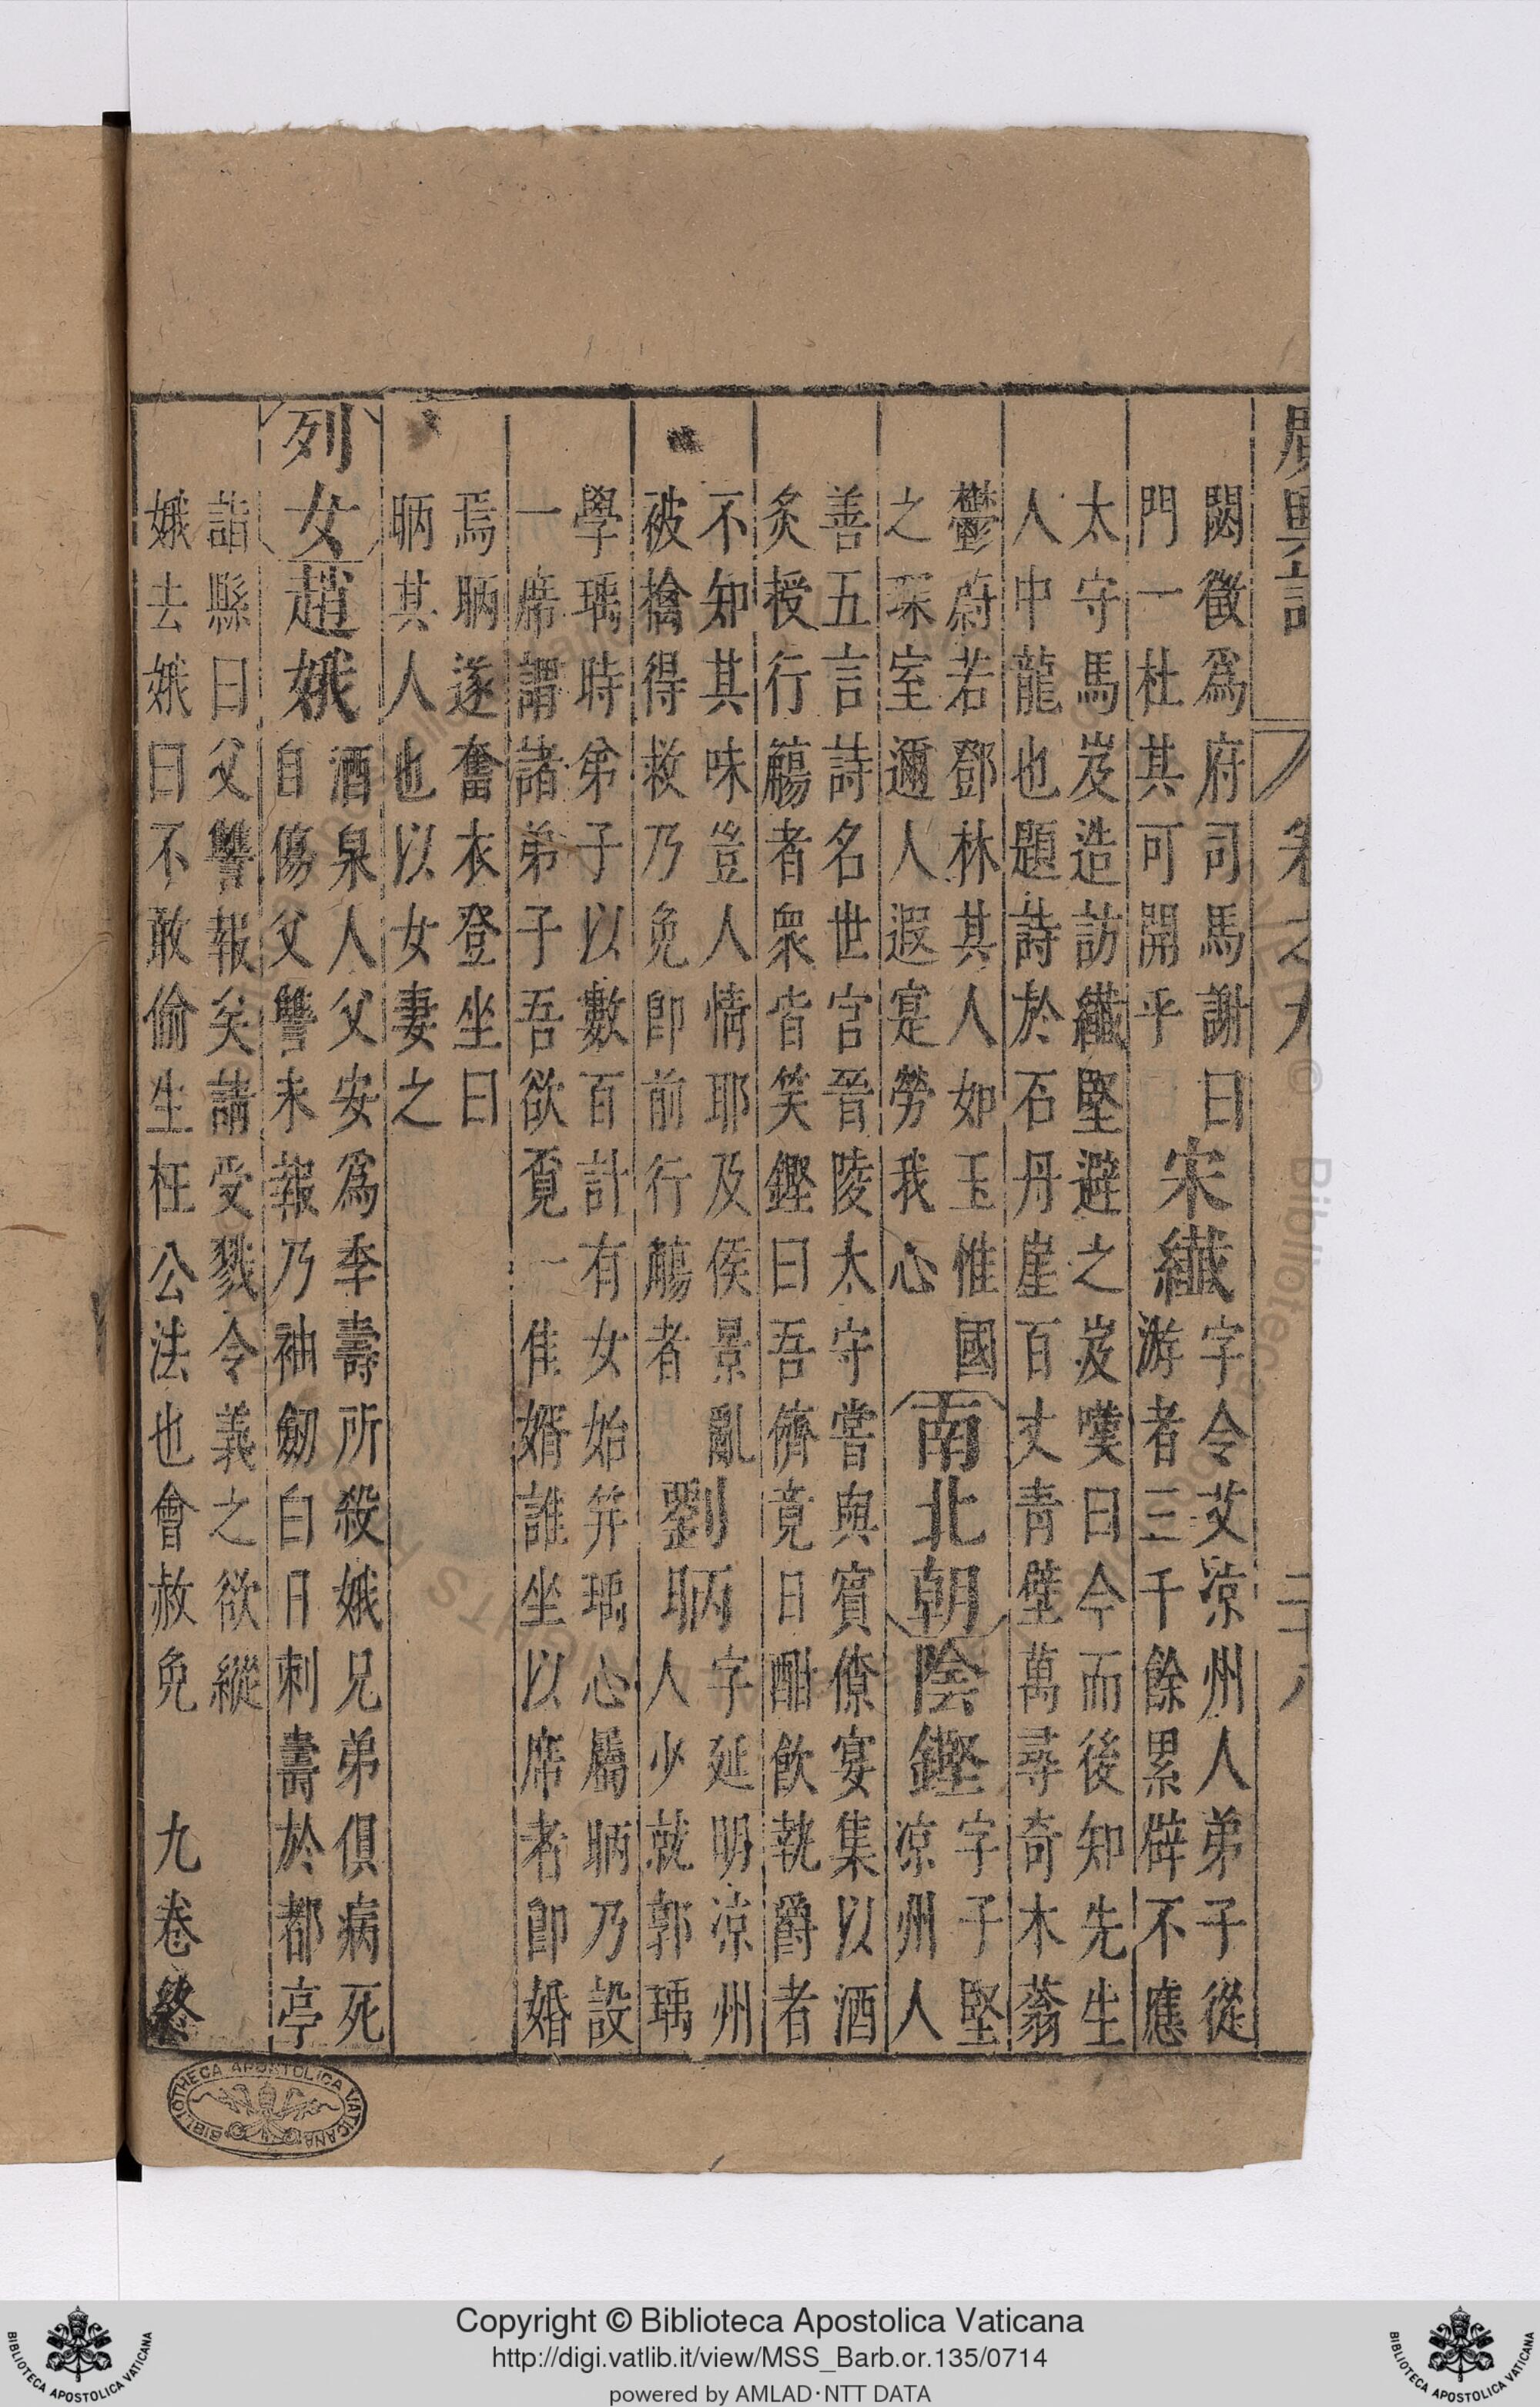 廣輿記 卷之九 二十八
闕徵爲府司馬謝曰
門一杜其可開乎
宋纖
字令艾凉州人弟子從
游者三千餘累辟不應
太守馬岌造訪纖堅避之岌嘆曰今而後知先生
人中龍也題詩於石丹崖百丈青壁萬尋奇木蓊
鬱蔚若鄧林其人如玉惟國
之琛室邇人遐寔勞我心
南北朝
陰鏗
字子堅
凉州人
善五言詩名世官晉陵太守嘗與賓僚宴集以酒
炙授行觴者衆皆笑鏗曰吾儕竟日酣飲執爵者
不知其味豈人情耶及侯景亂
被擒得救乃免卽前行觴者
劉昞
字延明凉州
人少就郭瑀
學瑀時弟子以數百計有女始笄瑀心屬昞乃設
一席謂諸弟子吾欲覔一佳婿誰坐以席者卽婚
焉昞遂奮衣登坐曰
昞其人也以女妻之
列女
趙娥
酒泉人父安爲季壽所殺娥兄弟俱病死
自傷父讐未報乃袖劒白日刺壽於都亭
詣縣曰父讐報矣請受戮令義之欲縱
娥去娥曰不敢偷生枉公法也會赦免
九卷終
BIBLIOTHECA APOSTOLICA VATICANA
Copyright © Biblioteca Apostolica Vaticana
http://digi.vatlib.it/view/MSS_Barb.or.135/0714
powered by AMLAD·NTT DATA
BIBLIOTECA APOSTOLICA VATICANA
BIBLIOTECA APOSTOLICA VATICANA